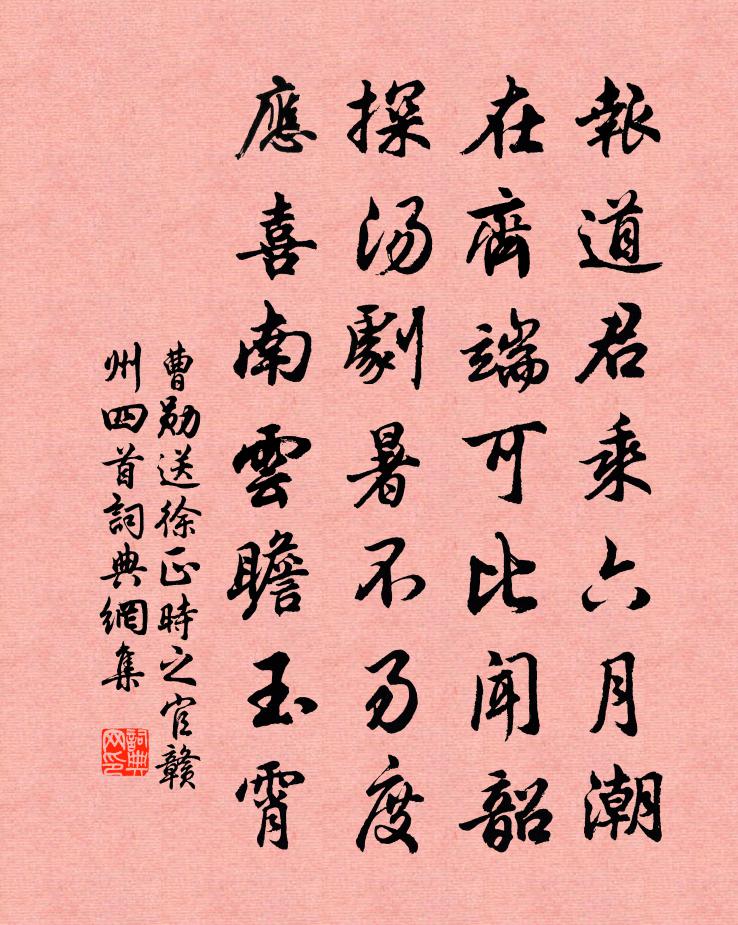 報道君乘六月潮
在齊端可比聞韶
探湯劇暑不易度
應喜南雲瞻玉霄
曹勛送徐正時之官贛
州四首詞典網集
詞典網印